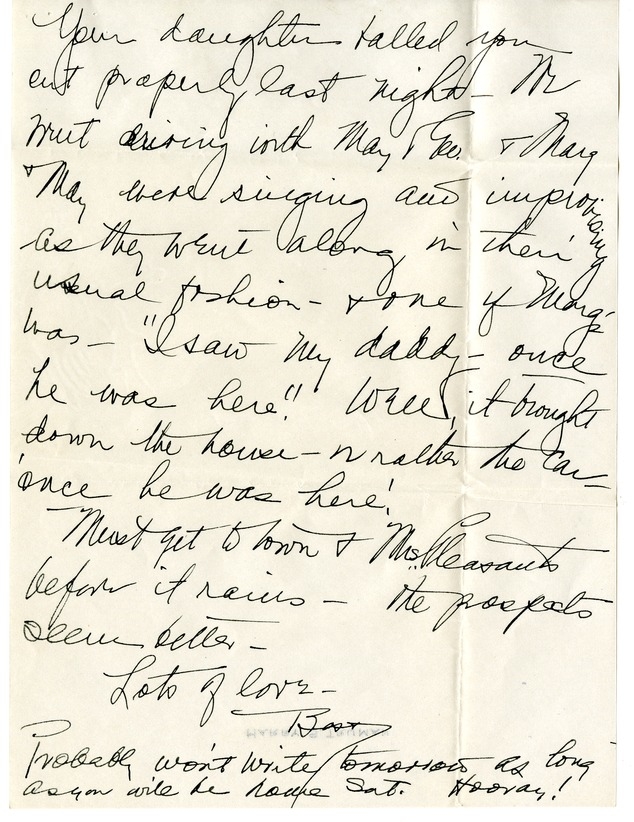 Your daughter called you
out properly last night – We
went driving with May & Geo. & Marg
& May were singing and improvising
as they went along in their
usual fashion – & one of Marg's
was – "I saw my daddy – once
he was here"! Well, it brought
down the house – or rather the car –
once he was here!
Must get to town & Mrs. Pleasants
before it rains – the prospects
seem better –
Lots of love –
Bess
Probably won't write tomorrow as long
as you will be home Sat. Hooray!
HARRY S. TRUMAN